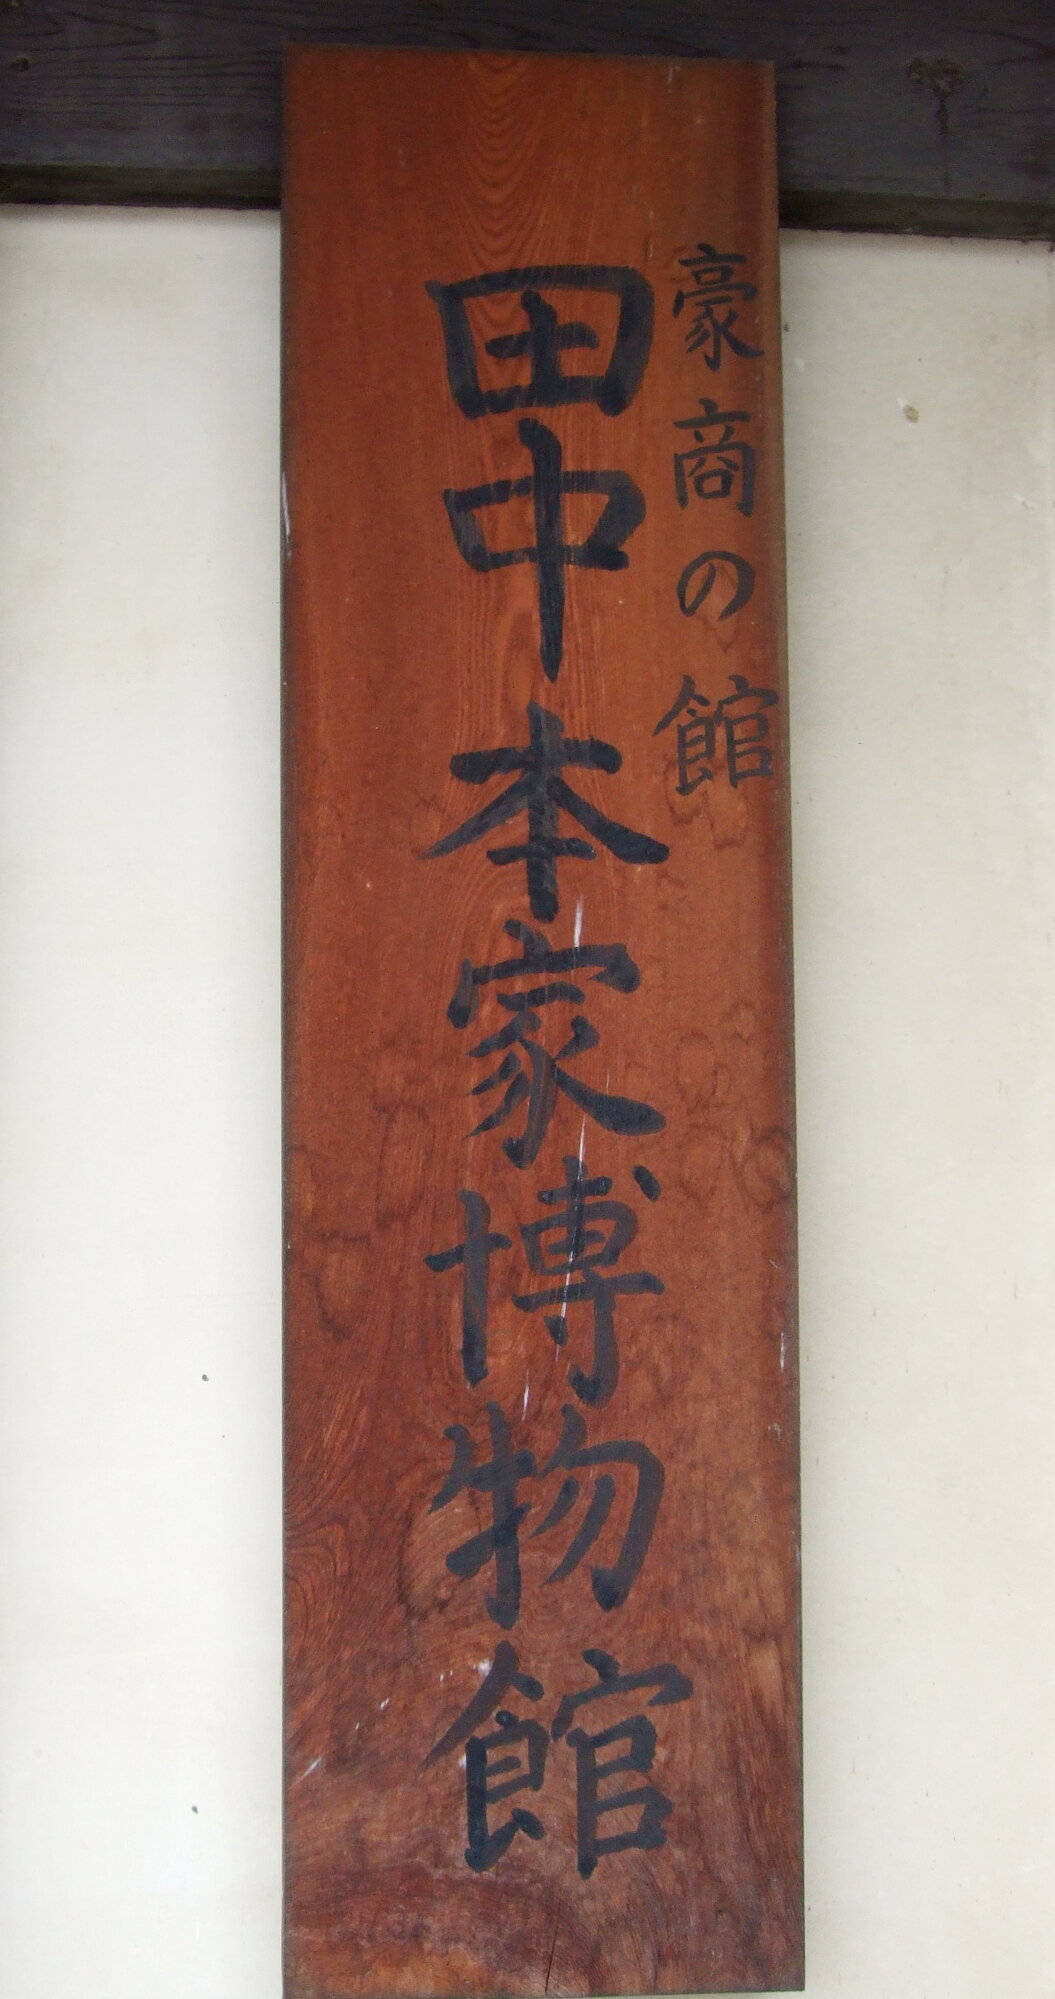 豪商の館
田中本家博物館